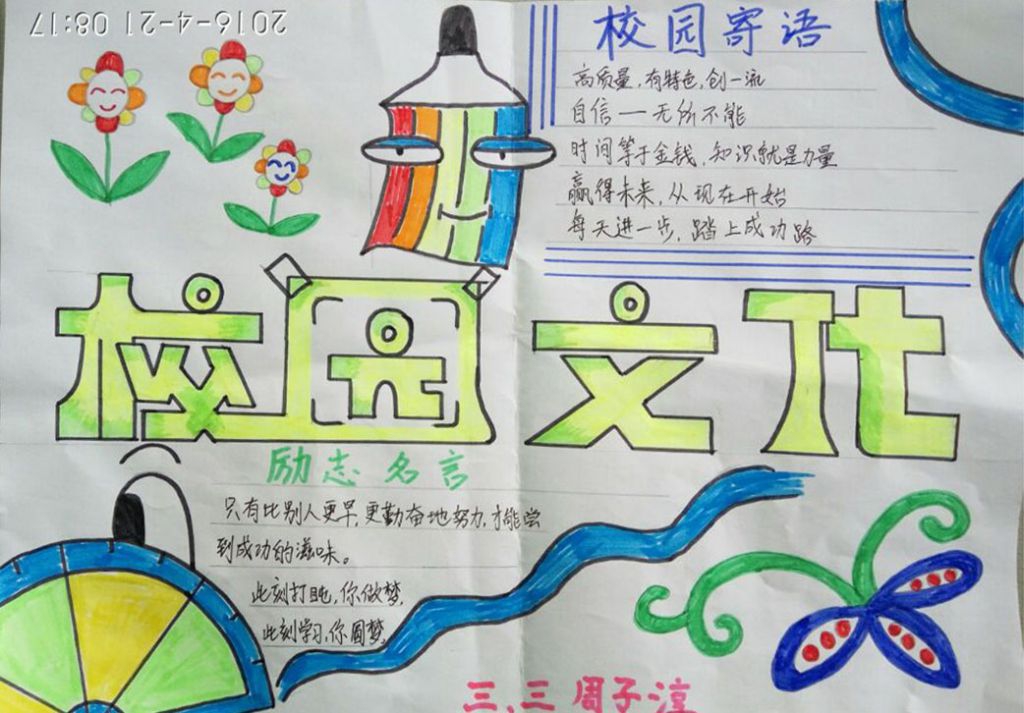 2016-4-21 08:17
校园寄语
高质量,有特色,创一流
自信——无所不能
时间等于金钱,知识就是力量
赢得未来,从现在开始
每天进一步,踏上成功路
校园文化
励志名言
只有比别人更早,更勤奋地努力,才能尝
到成功的滋味。
此刻打盹,你做梦,
此刻学习,你圆梦,
三.三 周子淳